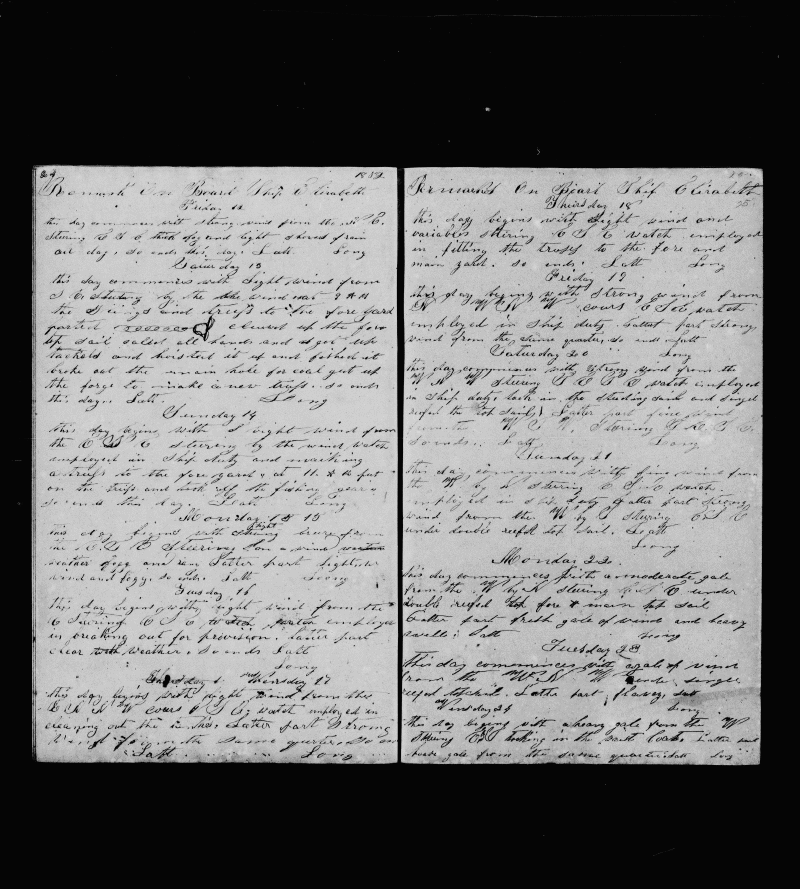 24 1852
Remarks On Board Ship Elizabeth
Friday 12
this day commences with strong wind from the E.
Stering E S E thick fog and light of rain
all day, so ends this day. Latt Long
Saturday 13
this day commences with light wind from
S E Stering by the the wind at 9 A M
the Slings and of the fore yard
parted clewed up the fore
top sail called all hands and got up
tackels and hoisted it up and fished it
broke out the main hole for coal got up
the forge to make a new truss. so ends
this day. Latt. Long
Sunday 14
this day begins with light wind from
the E S E steering by the wind watch
employed in Ship duty and making
a truss to the fore yard at 11 A M put
on the truss and took off the fishing
so ends this day. Latt Long
Monday 15
this day begins with light breeze from
the E S E Steering S on a wind
weather foggy and rain Latter part light
wind and foggy. so ends. Latt Long
Tuesday 16
this day begins with light wind from the
E Stering E S E watch employed
in breaking out for provision. Latter part
clear weather. So ends Latt
Long
Wensday 17
this day begins with light wind from the
N W cours E S E watch employed in
cleaning out the Latter part Strong
wind from the same quarter. So ends
Latt Long
Remarks On Board Ship Elizabeth
25
Thursday 18
this day begins with light wind and
variables stering E S E watch employed
in fitting the truss to the fore and
main yard. so ends. Latt Long
Friday 19
this day begins with strong wind from
N W N W cours E S E watch
employed in Ship duty. Latter part strong
wind from the same quarter so ends Latt
Saturday 20 Long
this day commences with strong wind from the
W N W stering E S E watch employed
in Ship duty took in the studing sails and singel
reefed the top sails Latter part fine wind
from the W S W. Steering
So ends. Latt Long
Sunday 21
this day commences with fine wind from
the W by N stering E S E watch
employed in ship duty Latter part strong
wind from the W by S Steering E S E
under double reefed top sail. Latt
Long
Monday 22
this day commences with a moderate gale
from the W by N stering E under
double reefed top fore & main top sail
Latter part fresh gale of wind and heavy
swell. Latt Long
Tuesday 23
this day commences with a gale of wind
from the W N W under singel
reefed topsail. Latter part Latt
Wensday 24 Long
this day begins with a heavy gale from the W
Stering looking in the Latter part
gale from the same quarter Latt Long